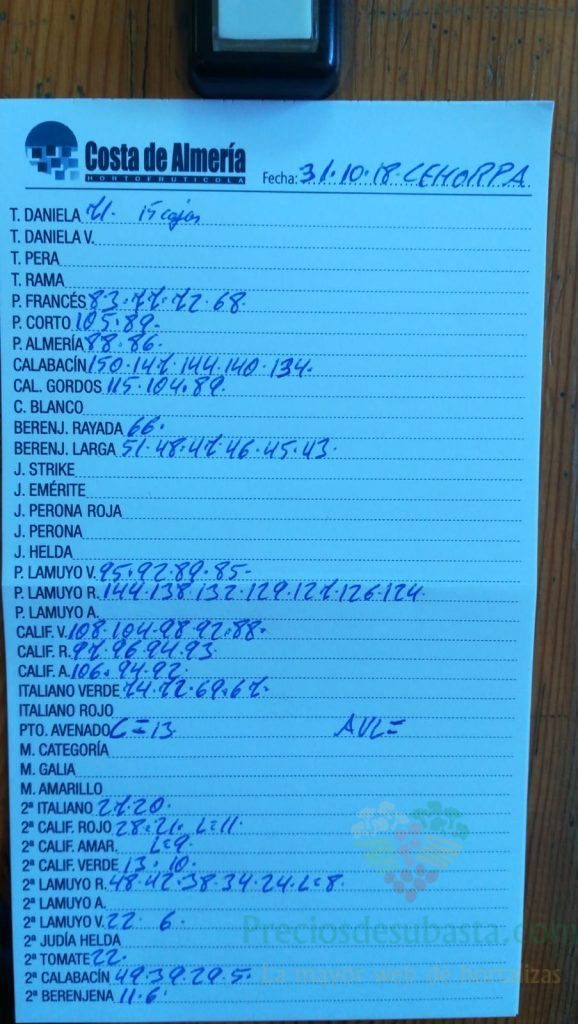 Costa de Almería
HORTOFRUTICOLA
Fecha: 31.10.18. CEHORPA
T. DANIELA 71. 15 cajas
T. DANIELA V.
T. PERA
T. RAMA
P. FRANCÉS 83.77.72.68
P. CORTO 105.89.
P. ALMERÍA 88.86.
CALABACÍN 150.147.144.140.134.
CAL. GORDOS 115.104.89.
C. BLANCO
BERENJ. RAYADA 66.
BERENJ. LARGA 51.48.47.46.45.43.
J. STRIKE
J. EMÉRITE
J. PERONA ROJA
J. PERONA
J. HELDA
P. LAMUYO V. 95.92.89.85.
P. LAMUYO R. 144.138.132.129.127.126.124
P. LAMUYO A.
CALIF. V. 108.104.98.92.88.
CALIF. R. 97.96.94.93
CALIF. A. 106.94.92.
ITALIANO VERDE 74.72.69.67.
ITALIANO ROJO
PTO. AVENADO C=13 AVL=
M. CATEGORÍA
M. GALIA
M. AMARILLO
2ª ITALIANO 27.20.
2ª CALIF. ROJO 28.21. L=11.
2ª CALIF. AMAR. L=9
2ª CALIF. VERDE 13.10.
2ª LAMUYO R. 48.42.38.34.24.L=8.
2ª LAMUYO A.
2ª LAMUYO V. 22 6.
2ª JUDÍA HELDA
2ª TOMATE 22.
2ª CALABACÍN 49.39.29.5.
2ª BERENJENA 11.6.
Preciosdesubasta.com
La mayor web de hortalizas